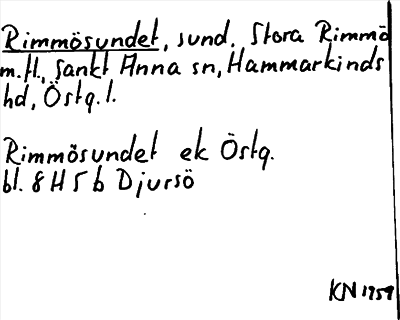 Rimmösundet, sund. Stora Rimmö
m.fl., Sankt Anna sn, Hammarkinds
hd, Östg. l.
Rimmösundet ek Östg.
bl. 8 H 5 b Djursö
KN 1959